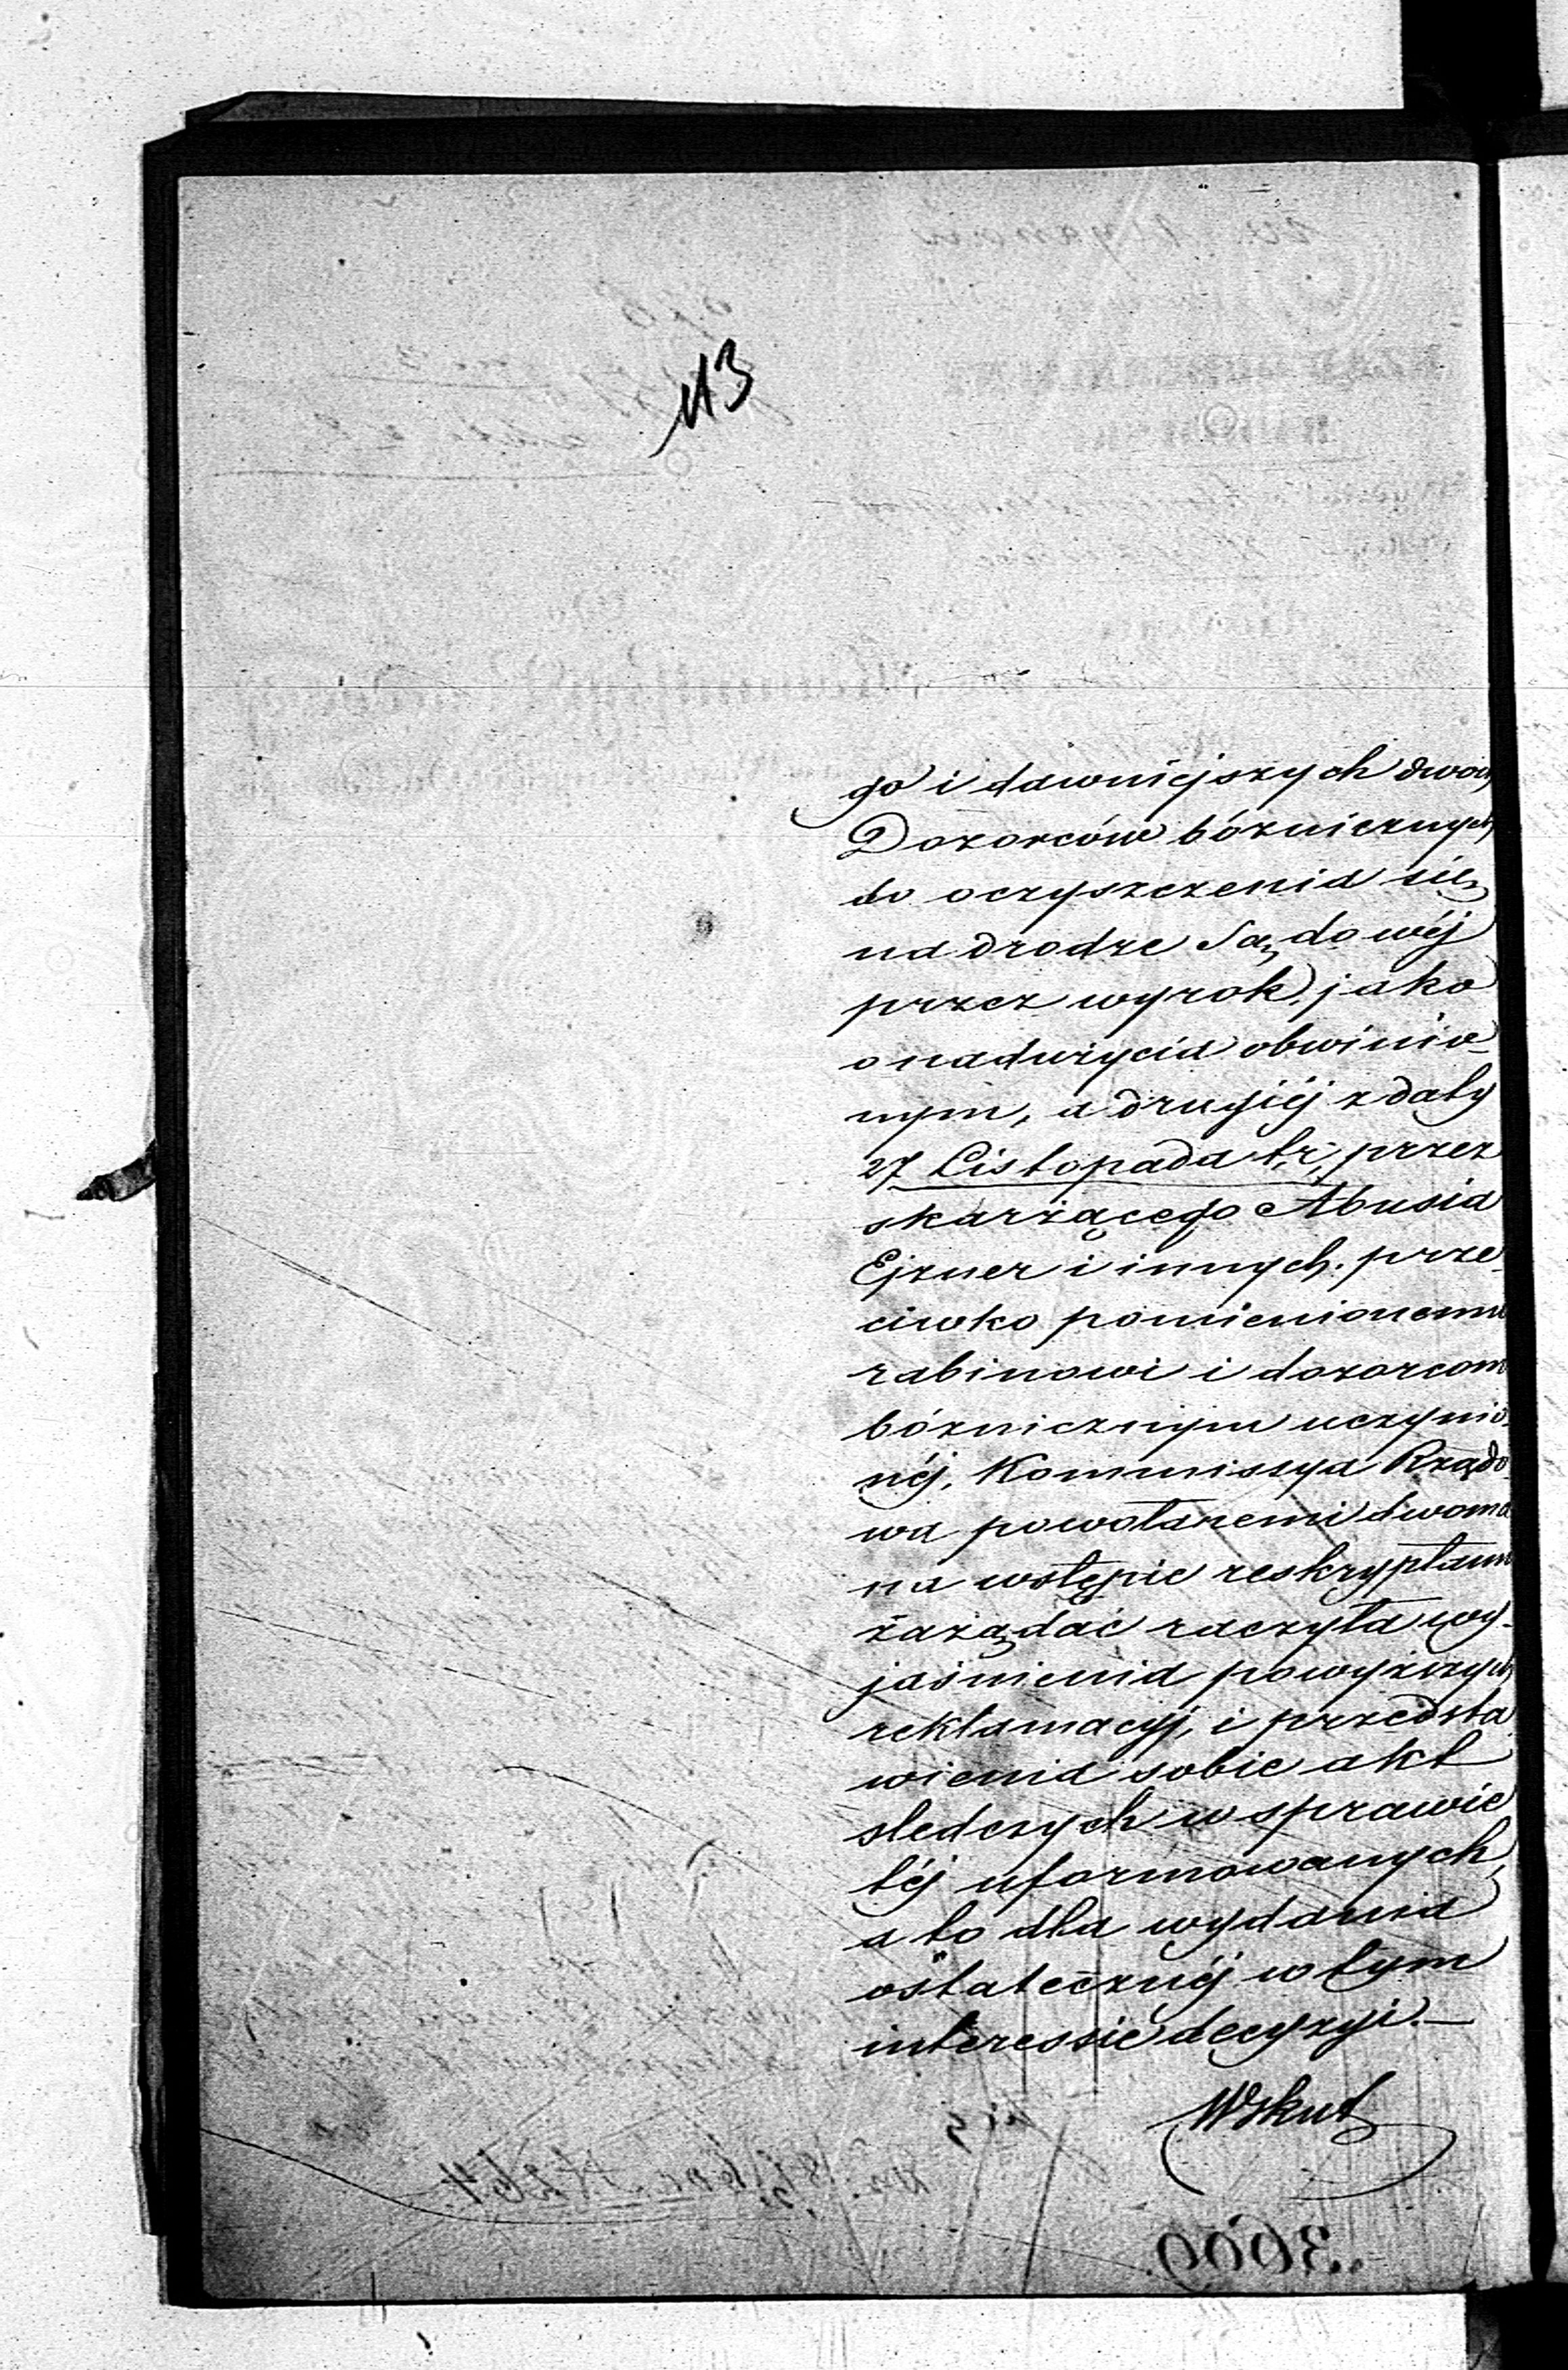 113
go i dawniejszych dwóch
Dozorców bóżnicznych
do oczyszczenia się
na drodze Sądowéj
przez wyrok, jako
o nadużycia obwinio-
nym, a drugiéj z daty
27 Listopada t.r. przez
skarżącego Abusia
Ejzner i innych, prze-
ciwko pomienionemu
rabinowi i dozorcom
bóżnicznym uczynio-
néj, Kommissya Rządo-
wa powołanemi dwoma
na wstępie reskryptami
zażądać raczyła wy-
jaśnienia powyższych
reklamacyj, i przedsta
wienia sobie akt
sledczych w sprawie
téj uformowanych,
a to dla wydania
ostatecznéj w tym
interessie decyzyi.—
Wskut